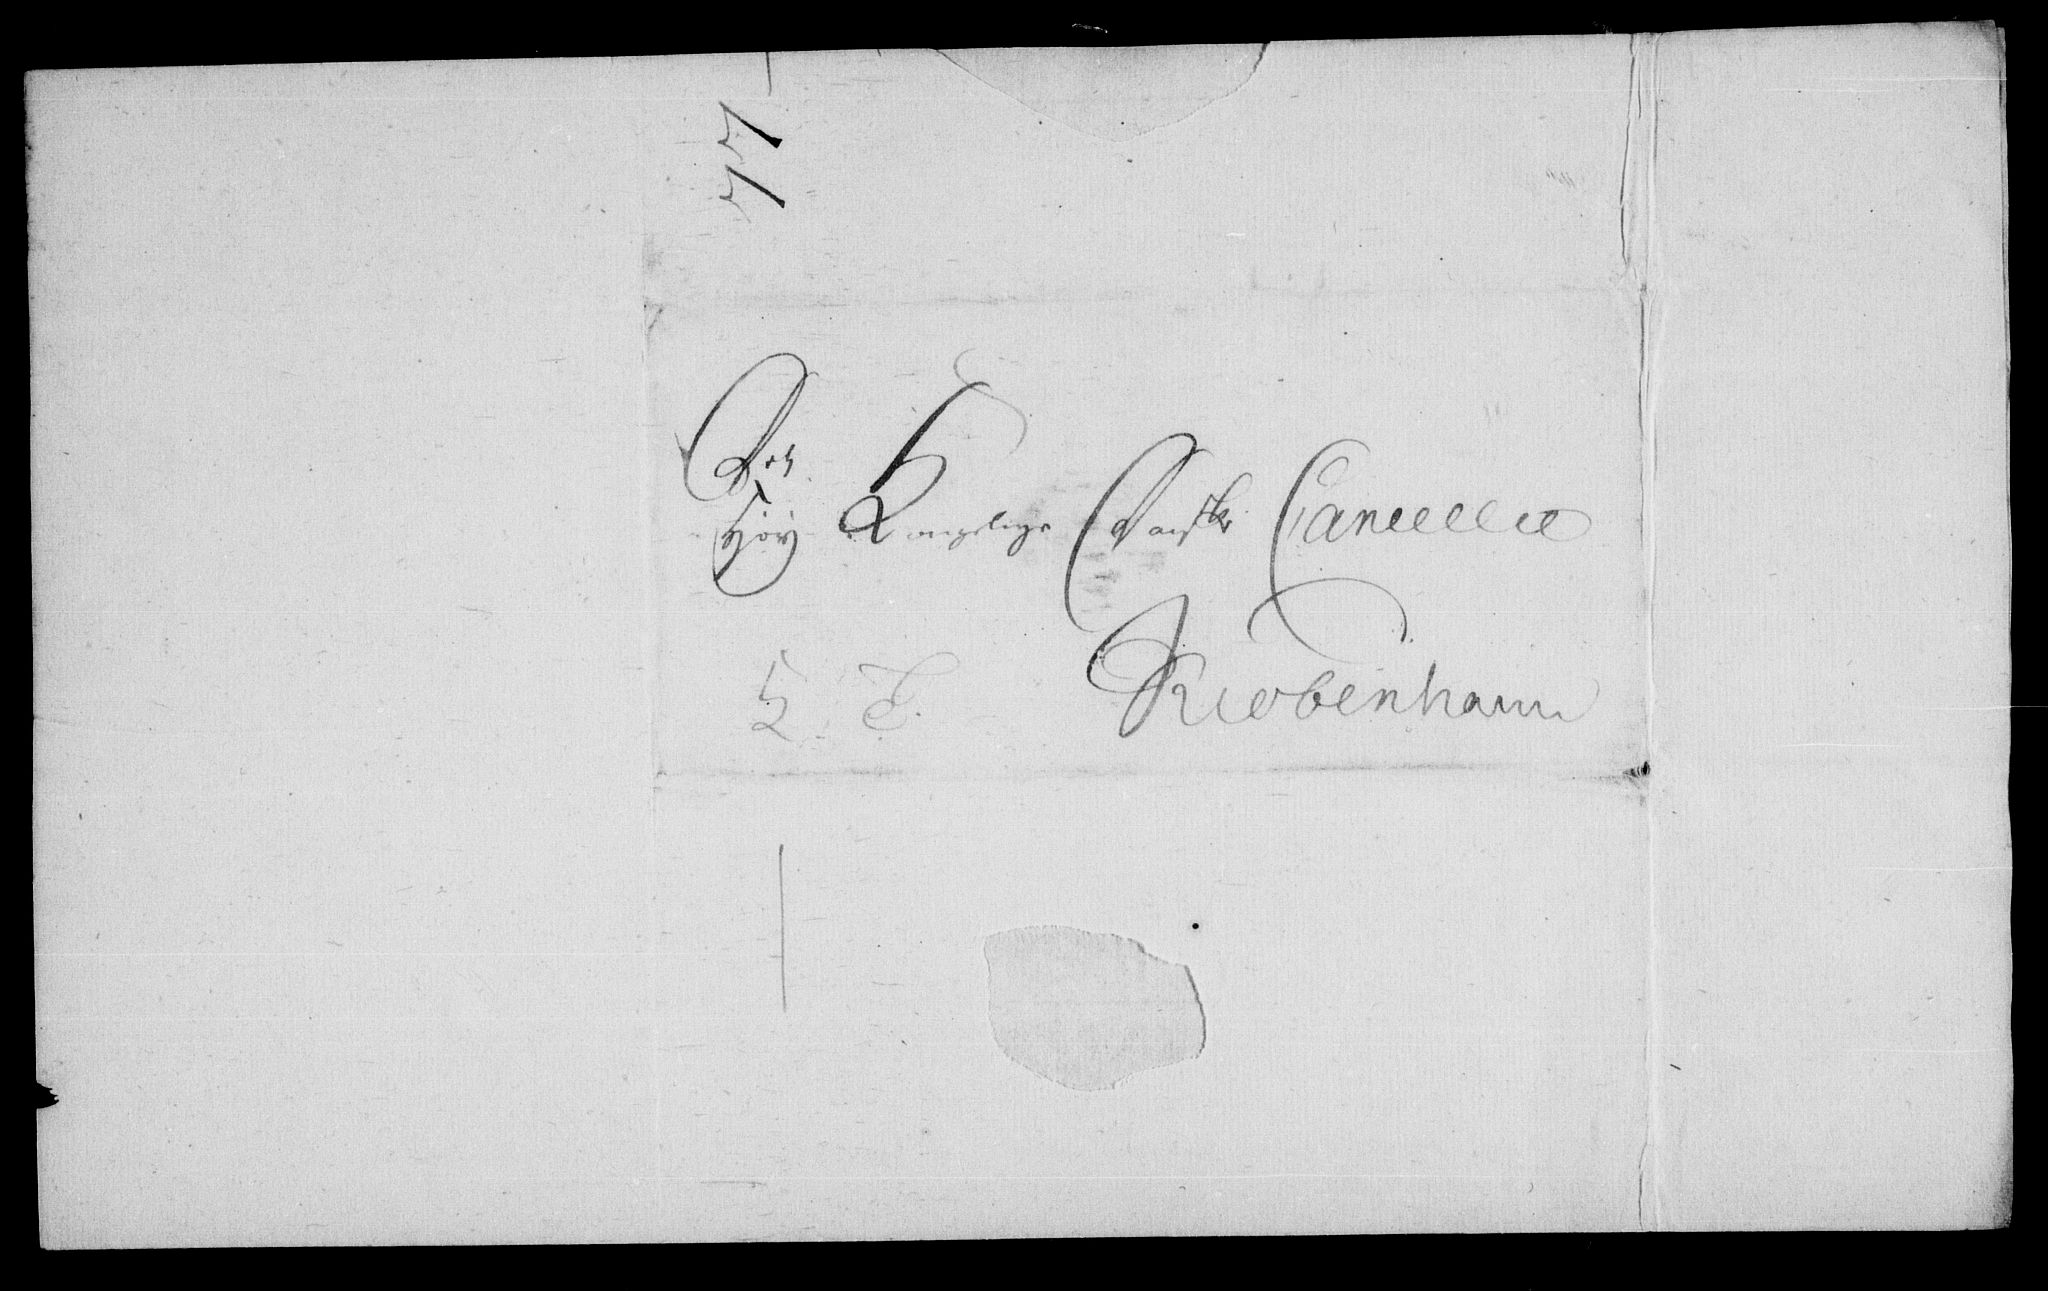 Det
Höy Kongelige Danske Cancellie
Kiøbenhavn
K. T.